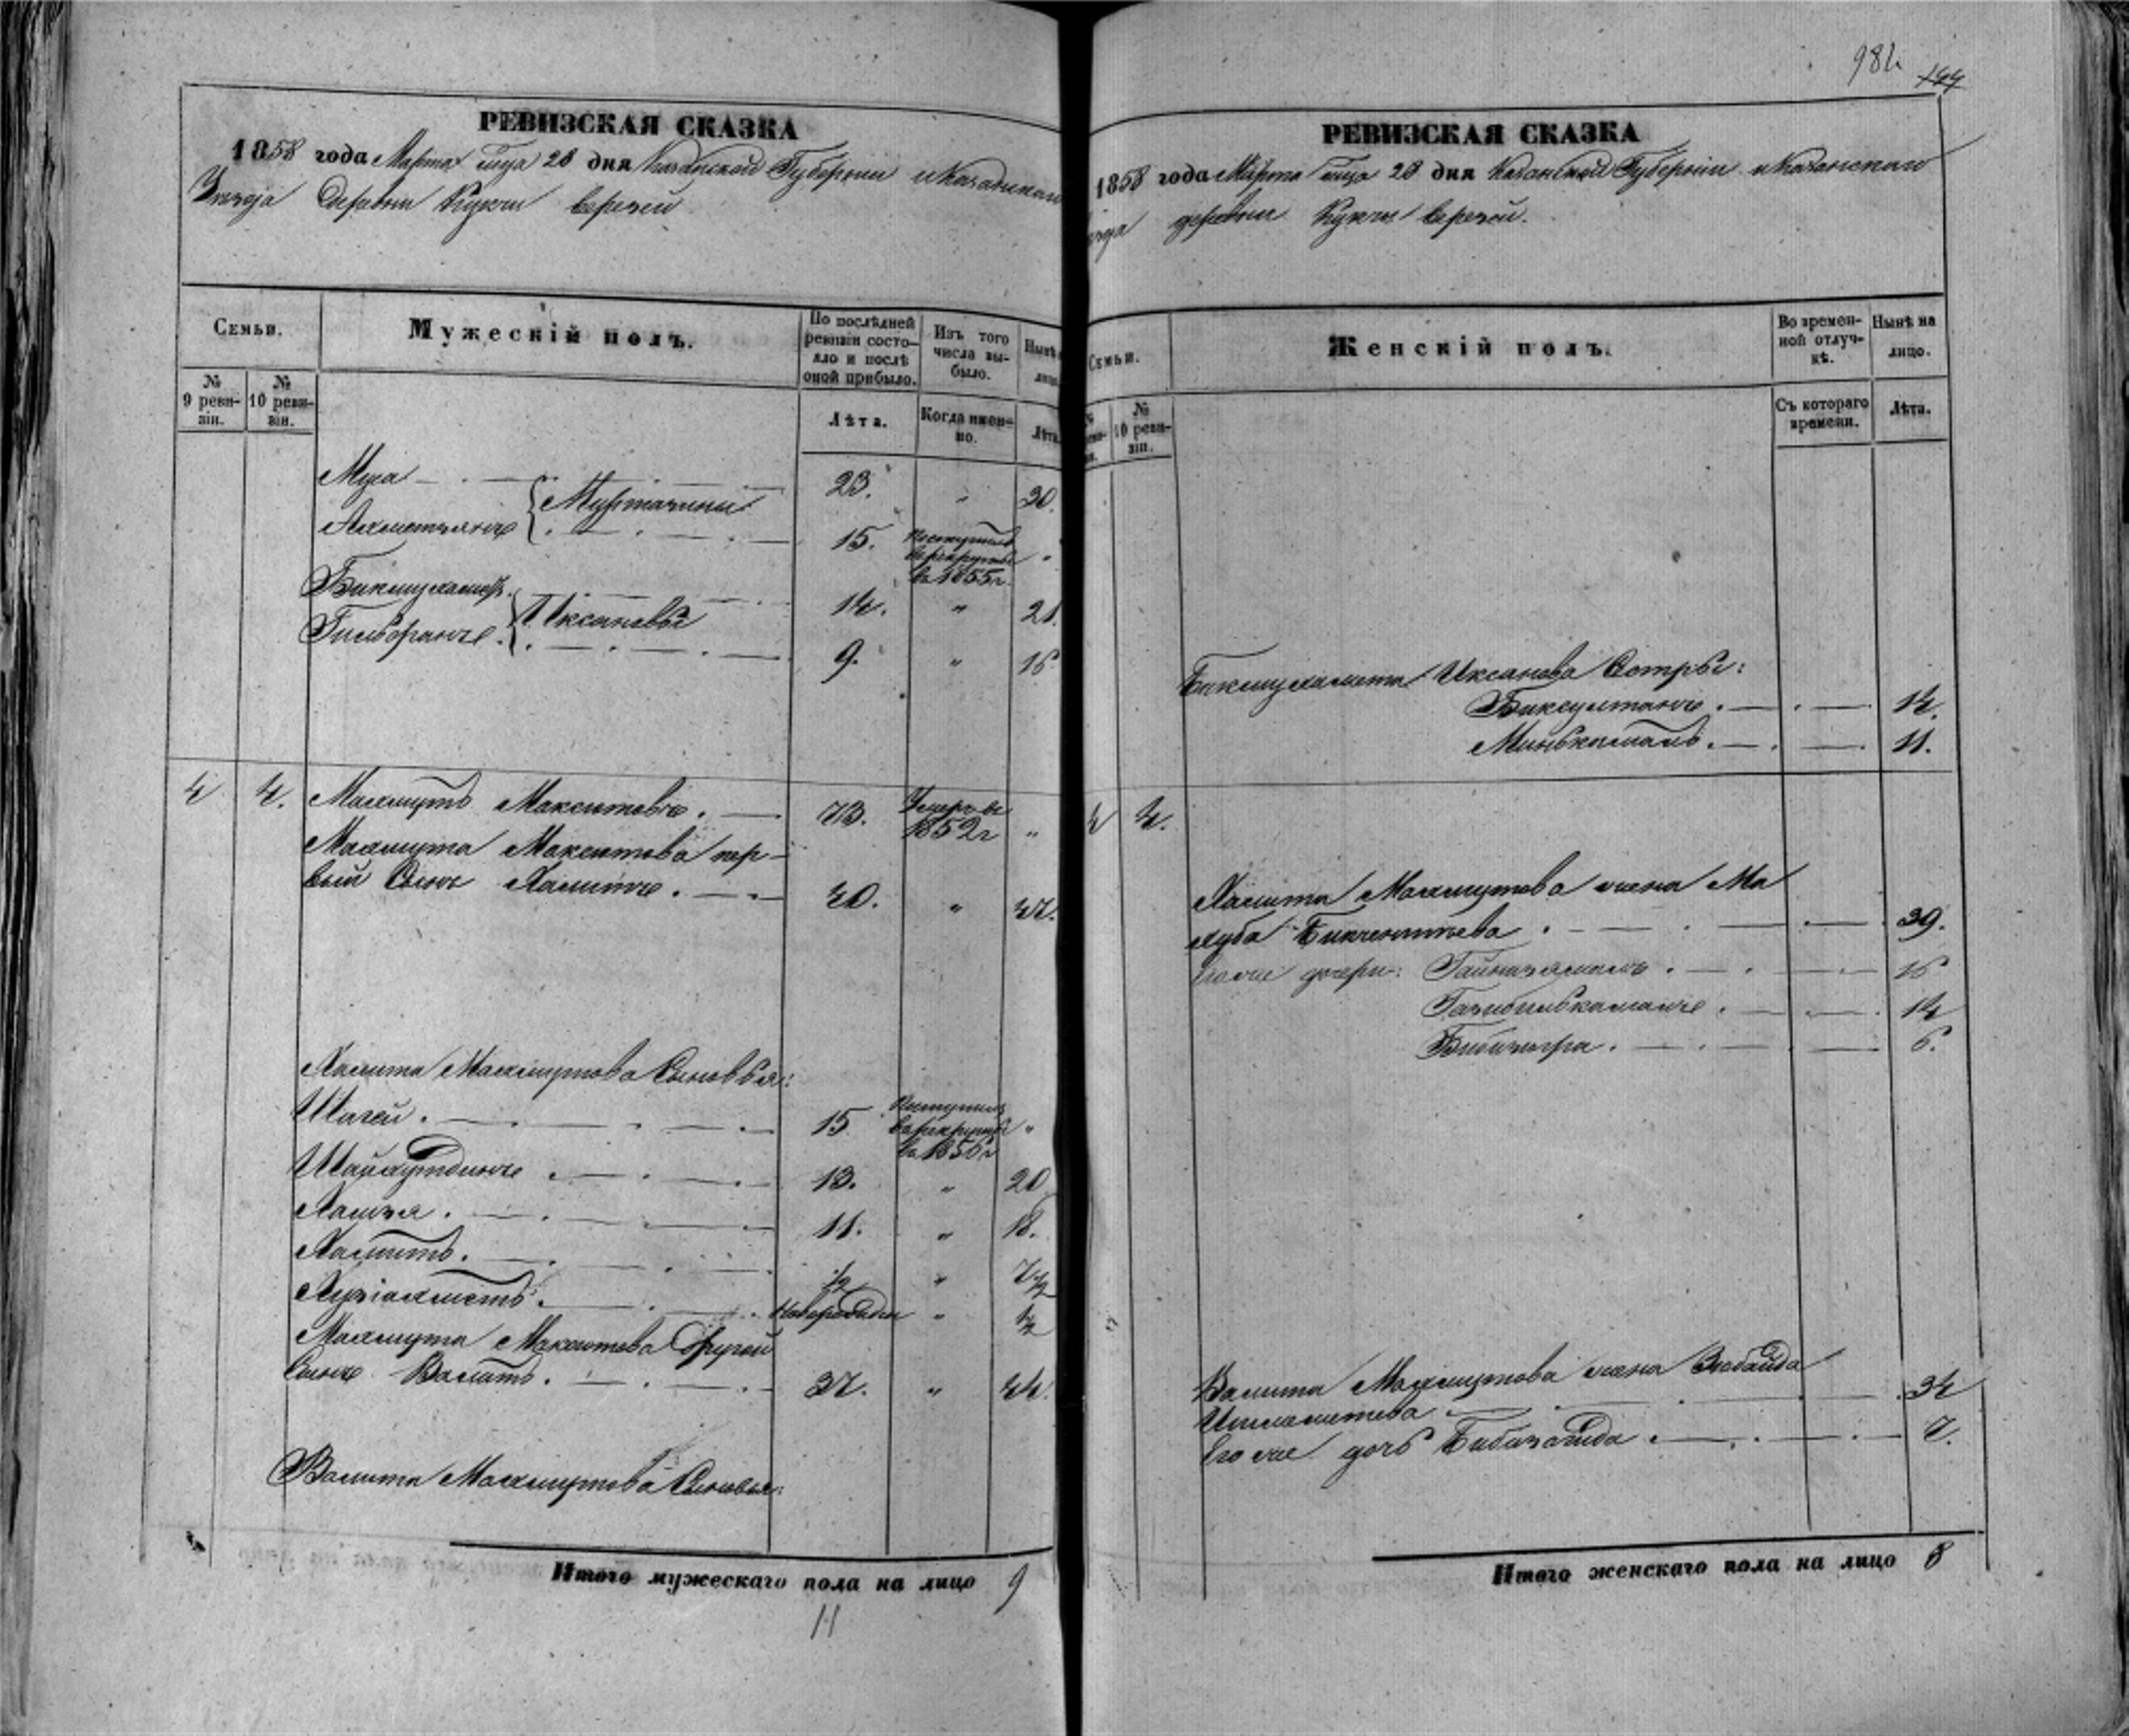 РЕВИЗСКАЯ СКАЗКА
1858 года Марта мца 28 дня Казанской Губернии и Казанскаго
Уезда Деревни Кукчи верезей
Семьи.
Мужескій полъ.
По послѣдней ревизіи состояло и послѣ оной прибыло.
Изъ того числа выбыло.
Нынѣ
лицо
№ 9 ревизіи.
№ 10 ревизіи.
Лѣта.
Когда именно.
Лѣта
Муса 23. " 30.
Муртазины
Ахметзянъ 15. Поступилъ в рекруты въ 1855 г. "
Бикмухаметъ 14. " 21.
Иксановы
9. " 16
4 4. Махмутъ Максютовъ. 73. Умеръ въ 1852 г "
Махмута Максютова пер-
вый Сынъ Хамитъ. 40. " 47.
Хамита Махмутова Сыновья:
Шагей. 15 Поступилъ в рекруты въ 1856 г "
Шайхутдинъ 13. " 20
Хамзя. 11. " 18.
½ " 7½
новорожден " ½
Махмута Максютова Другой
Сынъ Валитъ. 37. " 44.
Валита Махмутова Сыновья:
Итого мужескаго пола на лицо 9
11
984
144
РЕВИЗСКАЯ СКАЗКА
1858 года Марта мца 28 дня Казанской Губерніи и Казанскаго
уезда деревни Кукчи верезей.
Семьи.
Женскій полъ.
Во времен-ной отлуч-кѣ.
Нынѣ на лицо.
№ 10 ревизіи.
Съ котораго времени.
Лѣта.
Бикмухамета Иксанова Сестры:
Биксултанъ. 14.
Минькамалъ. 11.
4 4.
Хамита Махмутова жена Ма
хуба Бикчентаева. 39.
Его же дочери: Гайнизямалъ. 16
14
Бибизюгра. 6.
Валита Махмутова жена Зюбайда
34
Его же дочь Бибизягида. 7.
Итого женскаго пола на лицо 8